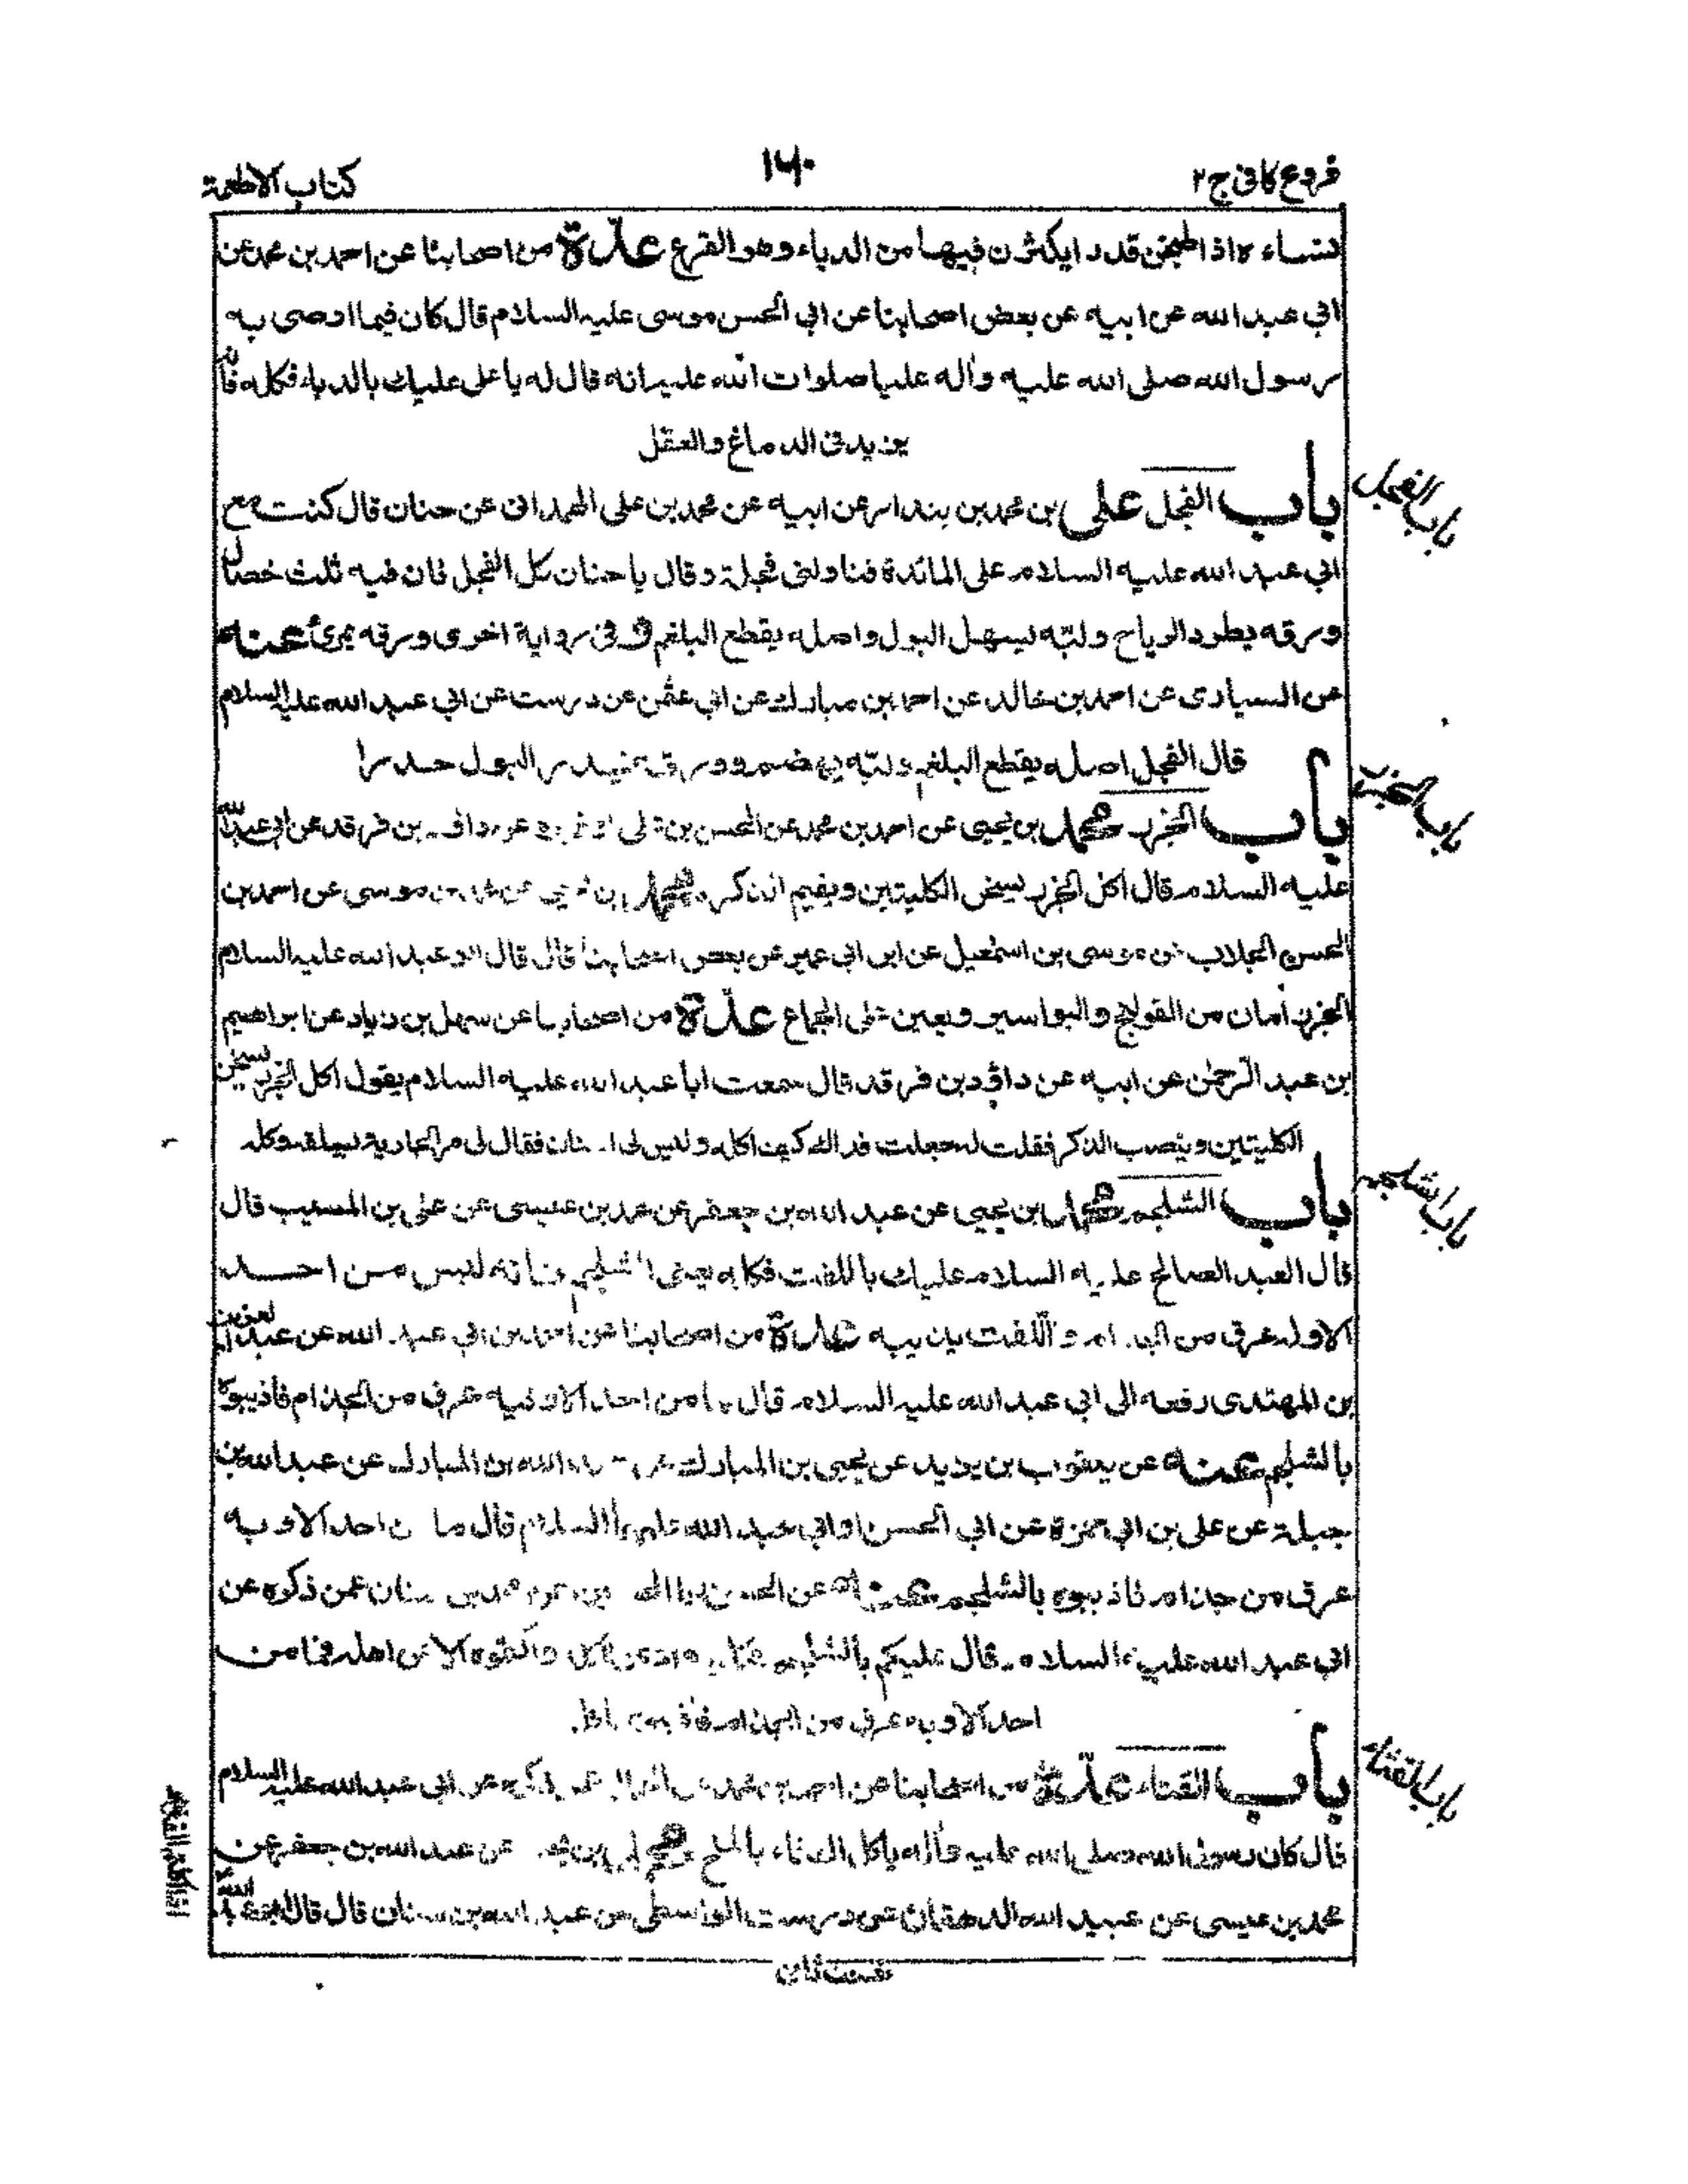 فروع كافى ج٢
١٦٠
كتاب الاطعمة
نساءه اذا طبخن قدرا يكثرن فيها من الدباء وهو القرع عدّة من اصحابنا عن احمد بن محمد عن
ابي عبد الله عن ابيه عن بعض اصحابنا عن ابي الحسن موسى عليه السلام قال كان فيما اوصى به
رسول الله صلى الله عليه وآله عليا صلوات الله عليه انه قال له يا على عليك بالدباء فكله فانه
يزيد فى الدماغ والعقل
باب الفجل
باب الفجل على بن محمد بن بندار عن ابيه عن محمد بن على الهمدانى عن حنان قال كنت مع
ابي عبد الله عليه السلام على المائدة فناولنى فجلة وقال يا حنان كل الفجل فان فيه ثلث خصال
ورقه يطرد الرياح ولبّه يسهل البول واصله يقطع البلغم و فى رواية اخرى ورقه يمرئ عنه
عن السيارى عن احمد بن خالد عن احمد بن مبارك عن ابي عثمن عن درست عن ابي عبد الله عليه السلام
قال الفجل اصله يقطع البلغم ولبّه يهضم وورقه يحدر البول حدرا
باب الجزر
باب الجزر محمد بن يحيى عن احمد بن محمد عن الحسن بن على عن داود بن فرقد عن ابي عبد الله
عليه السلام قال اكل الجزر يسخن الكليتين ويقيم الذكر محمد بن يحيى عن محمد بن موسى عن احمد بن
الحسن الجلاب عن موسى بن اسمعيل عن ابن ابي عمير عن بعض اصحابنا قال قال ابو عبد الله عليه السلام
الجزر أمان من القولنج والبواسير ويعين على الجماع عدّة من اصحابنا عن سهل بن زياد عن ابراهيم
بن عبد الرحمٰن عن ابيه عن داود بن فرقد قال سمعت ابا عبد الله عليه السلام يقول اكل الجزر يسخن
الكليتين وينصب الذكر فقلت له جعلت فداك كيف اكله وليس لى اسنان فقال لى مر الجارية تسلقه وكله
باب الشلجم
باب الشلجم محمد بن يحيى عن عبد الله بن جعفر عن محمد بن عيسى عن على بن المسيب قال
قال العبد الصالح عليه السلام عليك باللفت فكله يعنى الشلجم فانه ليس من احد
الا وله عرق من الجذام واللفت يذيبه عدة من اصحابنا عن احمد بن ابي عبد الله عن عبد العزيز
بن المهتدى رفعه الى ابي عبد الله عليه السلام قال ما من احد الا وفيه عرق من الجذام فاذيبوه
بالشلجم عنه عن يعقوب بن يزيد عن يحيى بن المبارك عن عبد الله بن المبارك عن عبد الله بن
جبلة عن على بن ابي حمزة عن ابي الحسن او ابي عبد الله عليهما السلام قال ما من احد الا وبه
عرق من جذام فاذيبوه بالشلجم عنه عن محمد بن سنان عمن ذكره عن
ابي عبد الله عليه السلام قال عليكم بالشلجم فكلوه واكتموه الا عن اهله فما من
احد الا وبه عرق من الجذام فاذيبوه
باب القثاء
باب القثاء عدّة من اصحابنا عن احمد بن محمد عن ذكره عن ابي عبد الله عليه السلام
قال كان رسول الله صلى الله عليه وآله ياكل القثاء بالملح محمد بن يحيى عن عبد الله بن جعفر عن
محمد بن عيسى عن عبيد الله الدهقان عن درست الواسطى عن عبد الله بن سنان قال قال